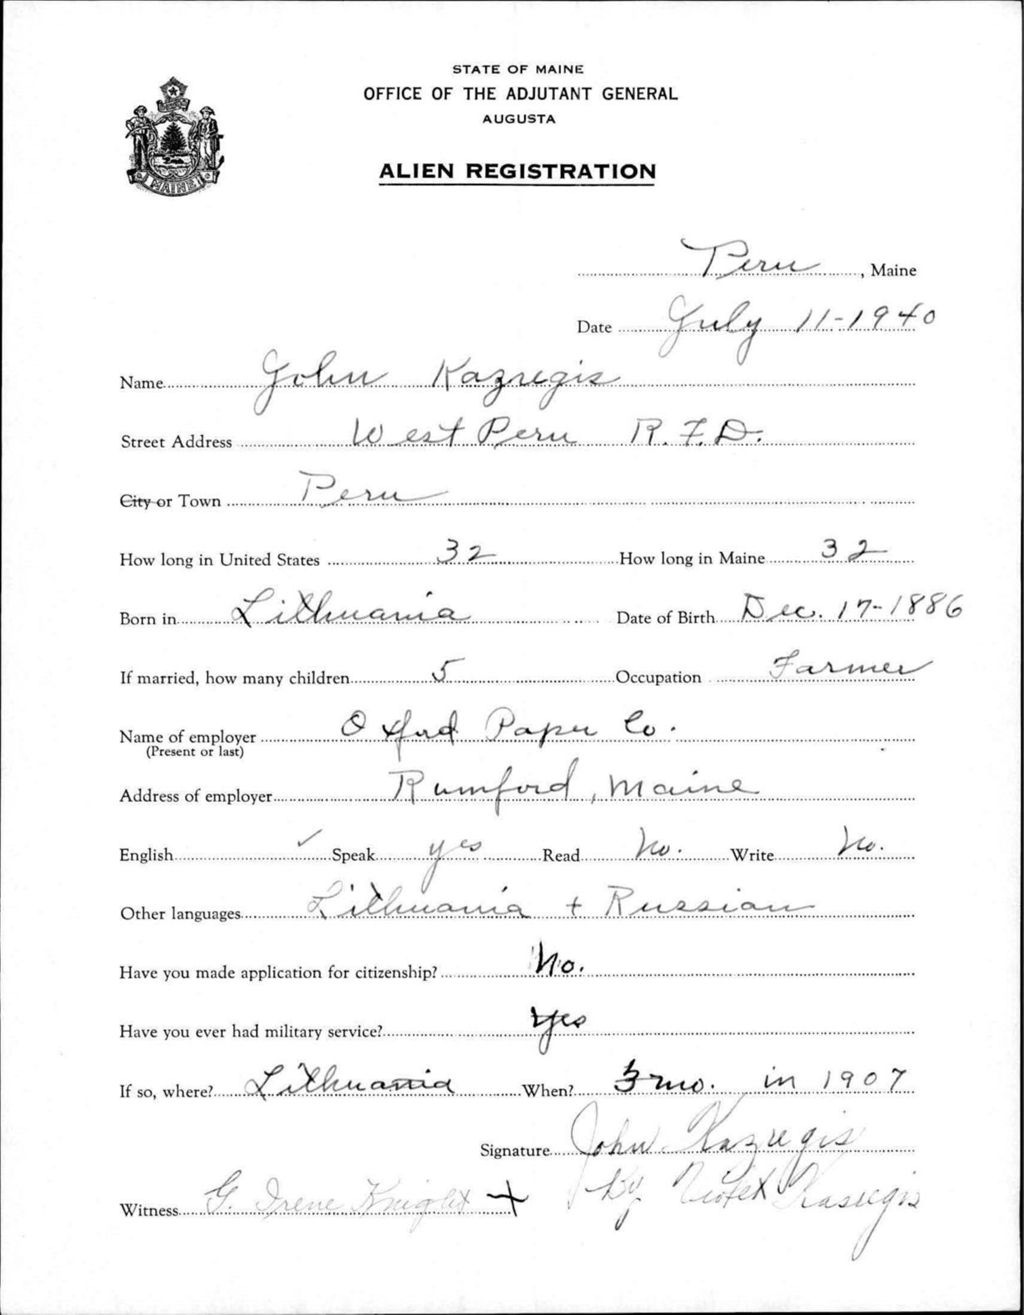 STATE OF MAINE
OFFICE OF THE ADJUTANT GENERAL
AUGUSTA
ALIEN REGISTRATION
MAINE
Peru, Maine
Date July 11-1940
Name John Kazregis
Street Address West Peru R.F.D.
City or Town Peru
How long in United States 32 How long in Maine 32
Born in Lithuania Date of Birth Dec. 17-1886
If married, how many children 5 Occupation Farmer
Name of employer Oxford Paper Co.
(Present or last)
Address of employer Rumford, Maine
English ✓ Speak yes Read No. Write No.
Other languages Lithuania + Russian
Have you made application for citizenship? No.
Have you ever had military service? Yes
If so, where? Lithuania When? 3 mo. in 1907
Signature John Kazregis
Witness G. Irene Knight + By Violet Kasregis